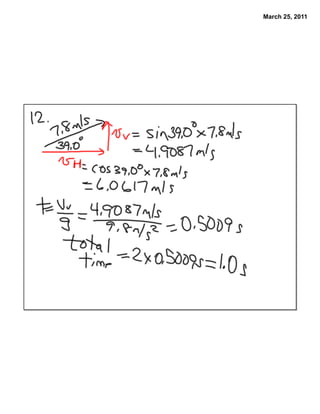 March 25, 2011
12.
7.8m/s
39.0°
vv = sin39.0° x 7.8m/s
= 4.9087 m/s
vH = cos39.0° x 7.8m/s
= 6.0617 m/s
t = Vv/g = 4.9087 m/s / 9.8 m/s² = 0.5009 s
total
time = 2 x 0.5009s = 1.0 s